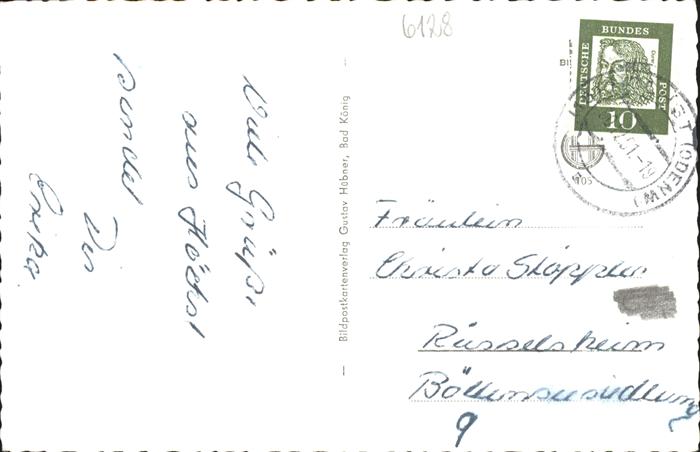 Viele Grüße
aus Höchst
sendet
Dir
Erika
Bildpostkartenverlag Gustav Hübner, Bad König
6128
DEUTSCHE
BUNDES
POST
10
ST (ODENW)
Fräulein
Christa Stöppler
Rüsselsheim
9